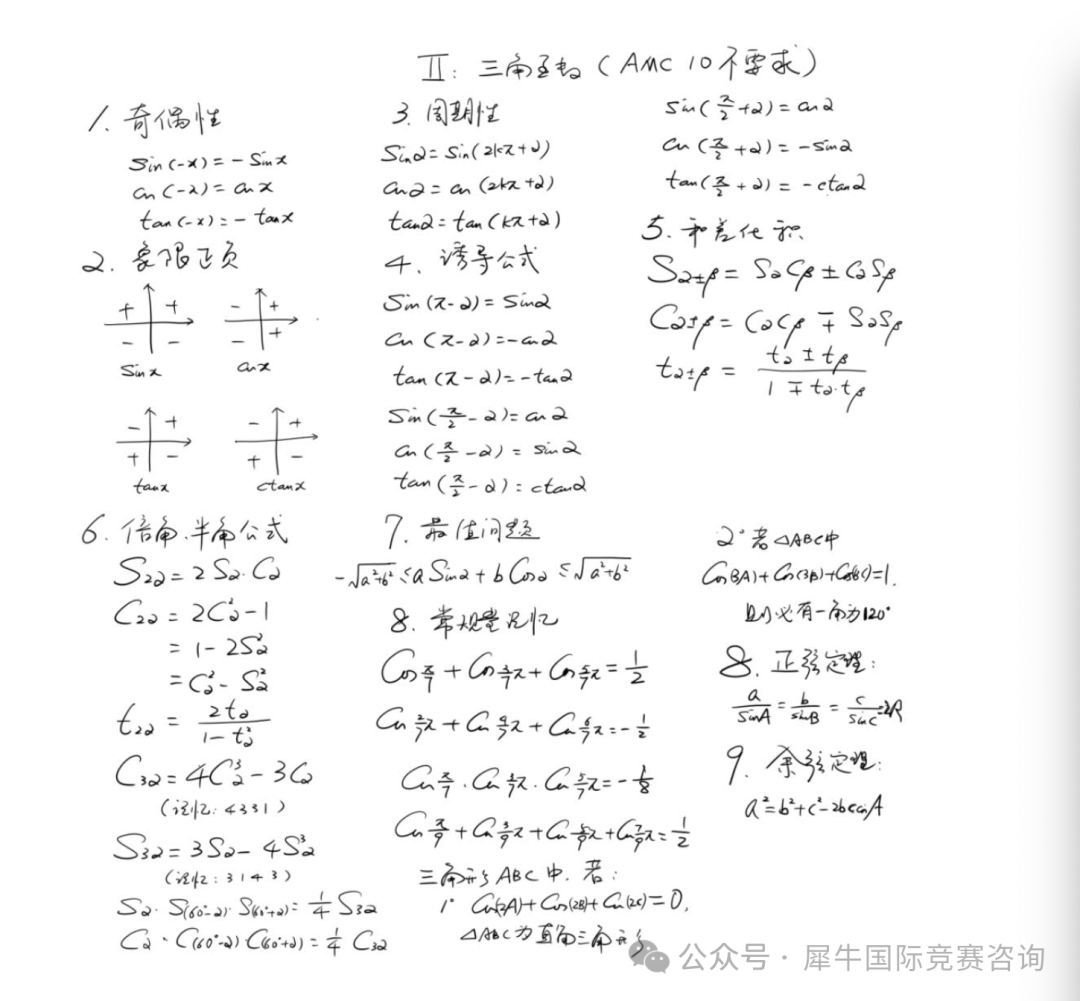 Ⅱ: 三角函数 (AMC 10不要求)
1. 奇偶性
sin(-x) = -sinx
cos(-x) = cosx
tan(-x) = -tanx
2. 象限正负
+ +
- -
sinx
- +
- +
cosx
- +
+ -
tanx
- +
+ -
ctanx
3. 周期性
sinα = sin(2kπ+α)
cosα = cos(2kπ+α)
tanα = tan(kπ+α)
4. 诱导公式
sin(π-α) = sinα
cos(π-α) = -cosα
tan(π-α) = -tanα
sin(π/2-α) = cosα
cos(π/2-α) = sinα
tan(π/2-α) = ctanα
sin(π/2+α) = cosα
cos(π/2+α) = -sinα
tan(π/2+α) = -ctanα
5. 和差化积
Sα±β = SαCβ ± CαSβ
Cα±β = CαCβ ∓ SαSβ
tα±β = (tα ± tβ)/(1 ∓ tα·tβ)
6. 倍角、半角公式
S2α = 2Sα·Cα
C2α = 2C²α - 1
= 1 - 2S²α
= C²α - S²α
t2α = 2tα/(1 - t²α)
C3α = 4C³α - 3Cα
(记忆: 4331)
S3α = 3Sα - 4S³α
(记忆: 3143)
Sα·S(60°-α)·S(60°+α) = 1/4 S3α
Cα·C(60°-α)·C(60°+α) = 1/4 C3α
7. 最值问题
-√(a²+b²) ≤ a Sinα + b Cosα ≤ √(a²+b²)
8. 常规量记忆
Cos π/7 + Cos 3/7π + Cos 5/7π = 1/2
Cos 2/7π + Cos 4/7π + Cos 6/7π = -1/2
Cos π/7 · Cos 3/7π · Cos 5/7π = -1/8
Cos π/9 + Cos 3/9π + Cos 5/9π + Cos 7/9π = 1/2
三角形ABC中. 若:
1° Cos(2A)+Cos(2B)+Cos(2C)=0,
△ABC为直角三角形
2° 若△ABC中
Cos(3A)+Cos(3B)+Cos(3C)=1.
则必有一角为120°
8. 正弦定理:
a/sinA = b/sinB = c/sinC = 2R
9. 余弦定理:
a²=b²+c²-2bccosA
公众号 · 犀牛国际竞赛咨询